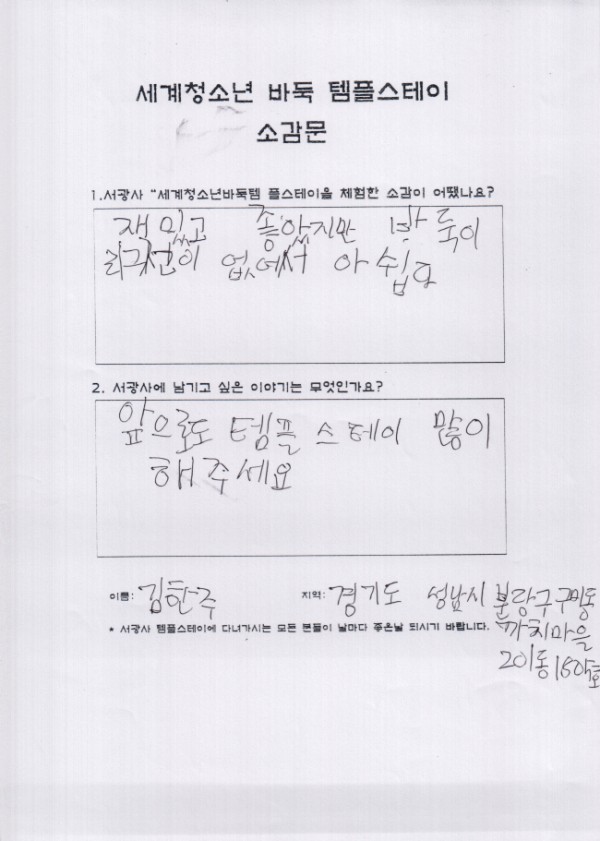 세계청소년 바둑 템플스테이
소감문
1.서광사 "세계청소년바둑템 플스테이을 체험한 소감이 어땠나요?
재밌고 좋았지만 바둑이
리그전이 없에서 아쉽다
2. 서광사에 남기고 싶은 이야기는 무엇인가요?
앞으로도 템플스테이 많이
해주세요
이름: 김한주 지역: 경기도 성남시 분당구 구미동
* 서광사 템플스테이에 다녀가시는 모든 분들이 날마다 좋은날 되시기 바랍니다. 까치마을
201동